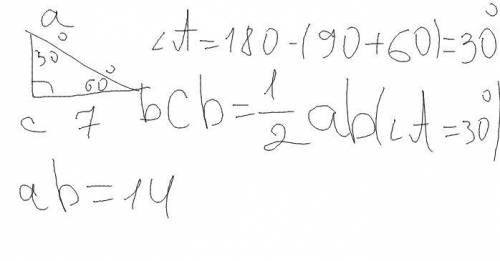 a
30°
60°
c 7 b
∠A=180-(90+60)=30°
cb=1/2 ab(∠A=30°)
ab=14